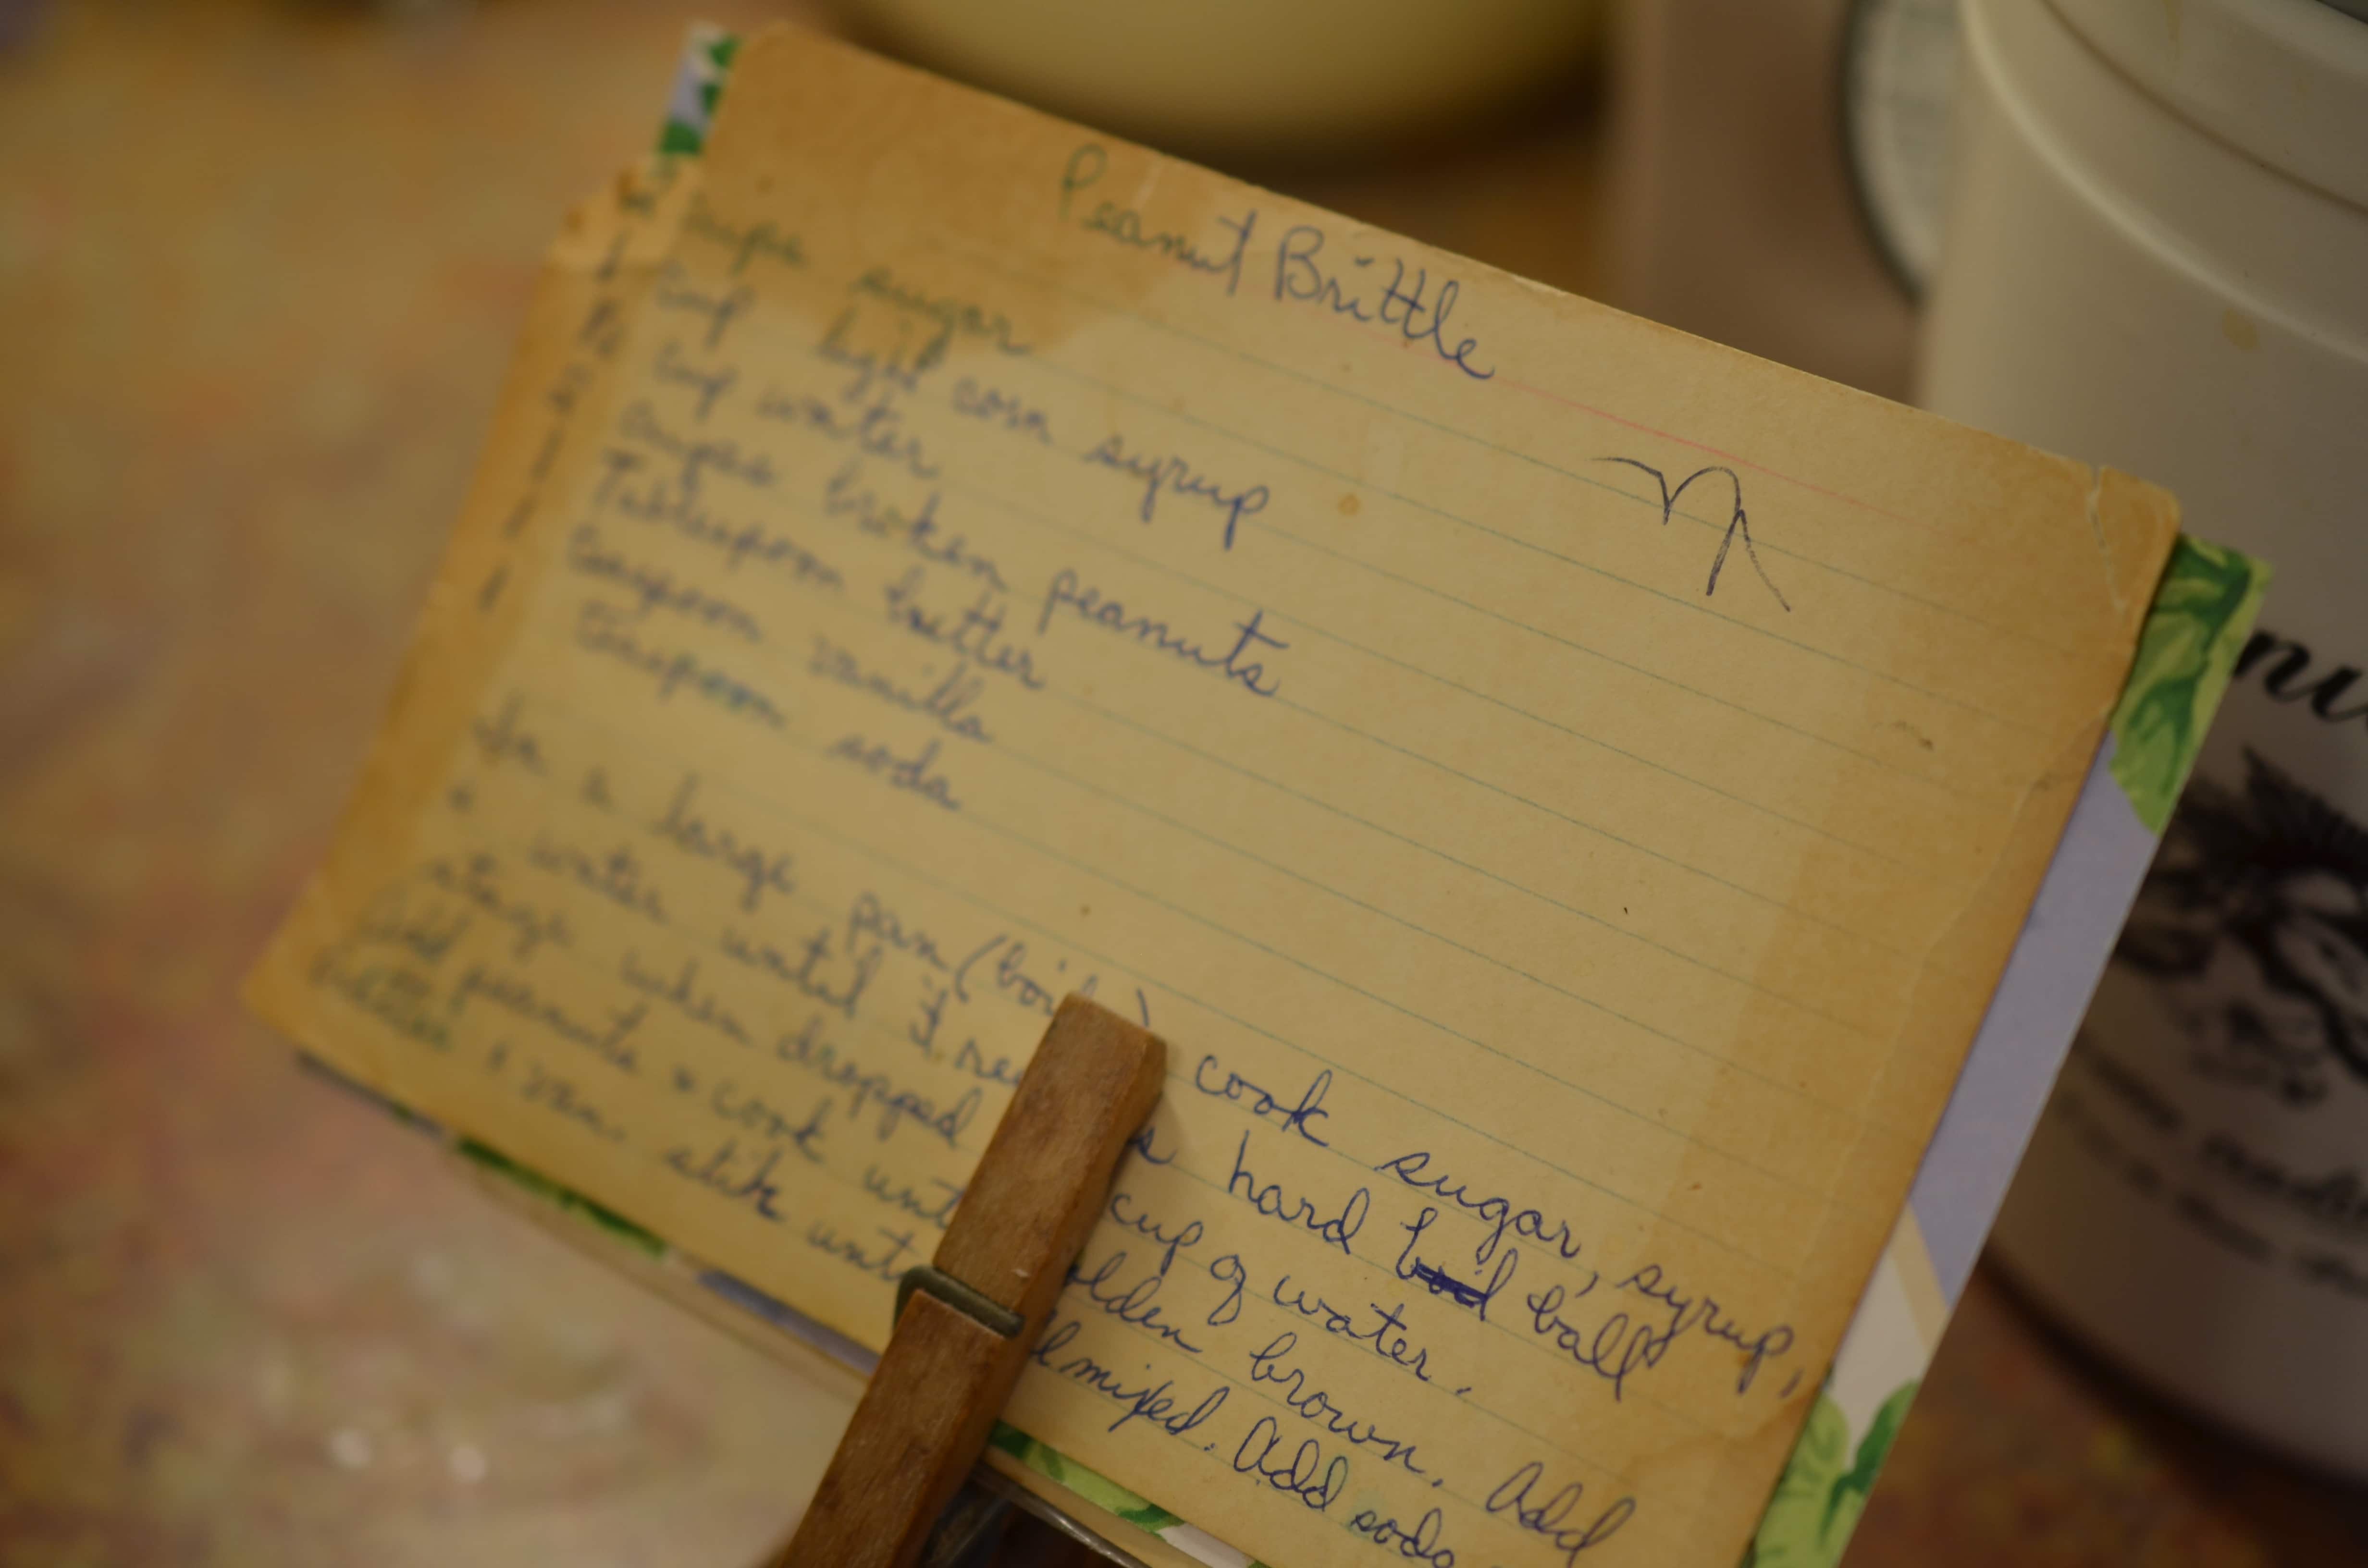 Peanut Brittle
cups sugar
1 cup light corn syrup
cup water
cups broken peanuts
1 Tablespoon butter
1 teaspoon vanilla
1 teaspoon soda
In a large pan (boil ) cook sugar, syrup,
+ water until it rea s hard ball
stage when dropped cup of water.
Add peanuts + cook unt olden brown. Add
butter + van. stir unti l mixed. Add soda
nu